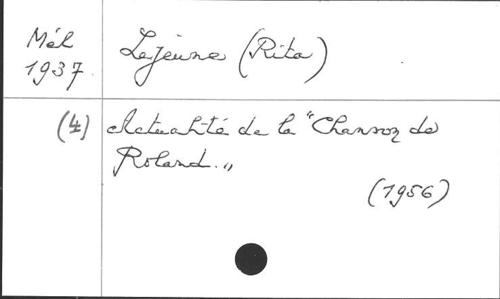 Mél
1937
Lejeune (Rita)
(4)
Actualité de la "Chanson de
Roland.„
(1956)